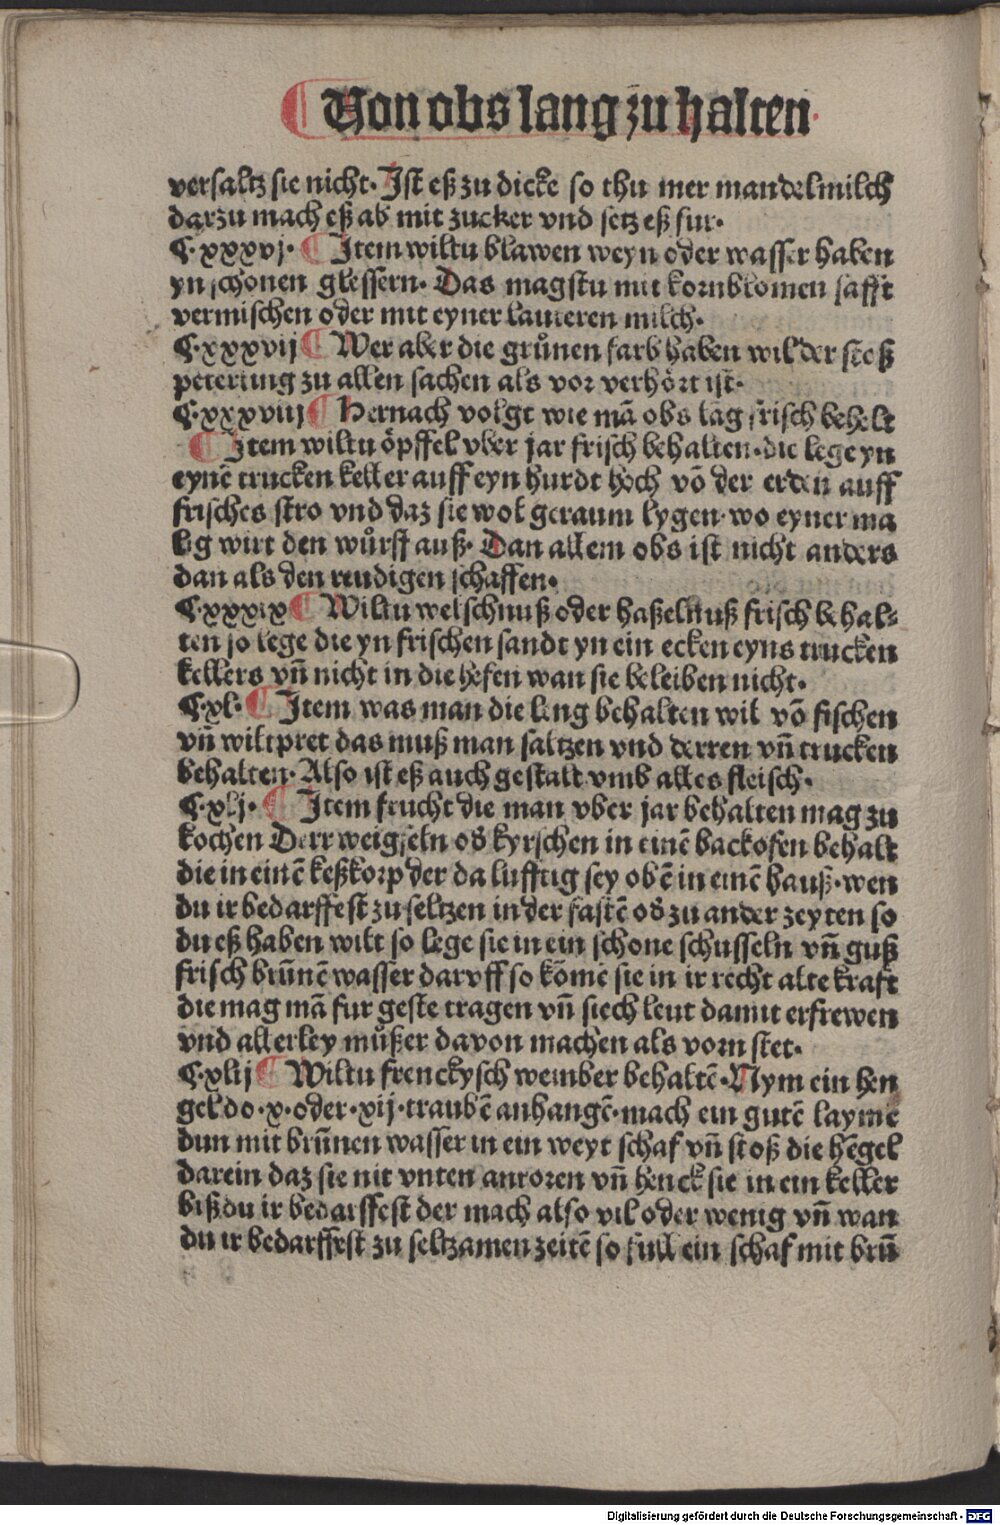 Von obs lang zu halten·
versaltz sie nicht· Ist eß zu dicke so thu mer mandelmilch
darzu mach eß ab mit zucker vnd setz eß fur·
¶·xxxvj· ¶ Item wiltu blawen weyn oder wasser haben
yn schonen glessern· Das magstu mit kornblomen safft
vermischen oder mit eyner lauteren milch·
¶·xxxvij ¶ Wer aber die grůnen farb haben wil der stoß
peterling zu allen sachen als vor verhört ist·
¶·xxxviij ¶ Hernach volgt wie mā obs lāg frisch behelt
¶ Item wiltu öpffel vber jar frisch behalten·die lege yn
eynē trucken keller auff eyn hurdt hoch vō der erden auff
frisches stro vnd daz sie wol geraum lygen·wo eyner ma
lig wirt den wůrff auß· Dan allem obs ist nicht anders
dan als den reudigen schaffen·
¶·xxxix ¶ Wiltu welschnuß oder haßelnuß frisch behal⸗
ten so lege die yn frischen sandt yn ein ecken eyns trucken
kellers vñ nicht in die hefen wan sie beleiben nicht·
¶·xl· ¶ Item was man die leng behalten wil vō fischen
vñ wiltpret das muß man saltzen vnd derren vñ trucken
behalten· Also ist eß auch gestalt vmb alles fleisch·
¶·xlj· ¶ Item frucht die man vber jar behalten mag zu
kochen Derr weigseln od kyrschen in einē backofen behalt
die in einē keßkorp der da lufftig sey obē in einē hauß·wen
du ir bedarffest zu seltzen in der fastē od zu ander zeyten so
du eß haben wilt so lege sie in ein schone schusseln vñ guß
frisch brūnē wasser darvff so kōmē sie in ir recht alte kraft
die mag mā fur geste tragen vñ siech leut damit erfrewen
vnd allerley můßer davon machen als vorn stet·
¶·xlij ¶ Wiltu frenckysch weinber behaltē· Nym ein hen
gel do·x·oder·xij·traubē anhangē·mach ein gutē layme
dun mit brūnen wasser in ein weyt schaf vñ stoß die hēgel
darein daz sie nit vnten anroren vñ henck sie in ein keller
biß du ir bedarffest der mach also vil oder wenig vñ wan
du ir bedarffest zu seltzamen zeitē so full ein schaf mit brū
Digitalisierung gefördert durch die Deutsche Forschungsgemeinschaft - DFG